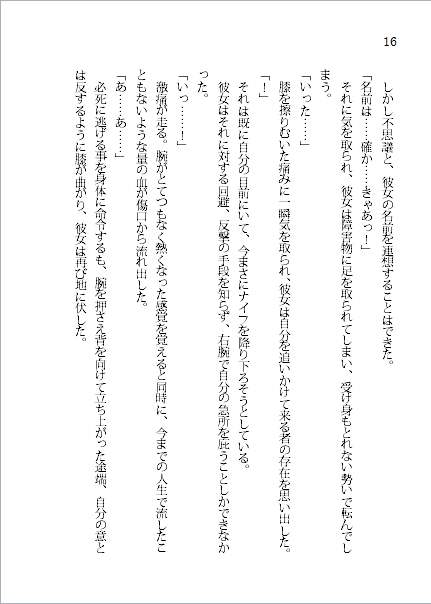 16
しかし不思議と、彼女の名前を連想することはできた。
「名前は……確か……きゃあっ！」
それに気を取られ、彼女は障害物に足を取られてしまい、受け身もとれない勢いで転んでし
まう。
「いった……」
膝を擦りむいた痛みに一瞬気を取られ、彼女は自分を追いかけて来る者の存在を思い出した。
「！」
それは既に自分の目前にいて、今まさにナイフを降り下ろそうとしている。
彼女はそれに対する回避、反撃の手段を知らず、右腕で自分の急所を庇うことしかできなか
った。
「いっ……！」
激痛が走る。腕がとてつもなく熱くなった感覚を覚えると同時に、今までの人生で流したこ
ともないような量の血が傷口から流れ出した。
「あ……あ……」
必死に逃げる事を身体に命令するも、腕を押さえ背を向けて立ち上がった途端、自分の意と
は反するように膝が曲がり、彼女は再び地に伏した。